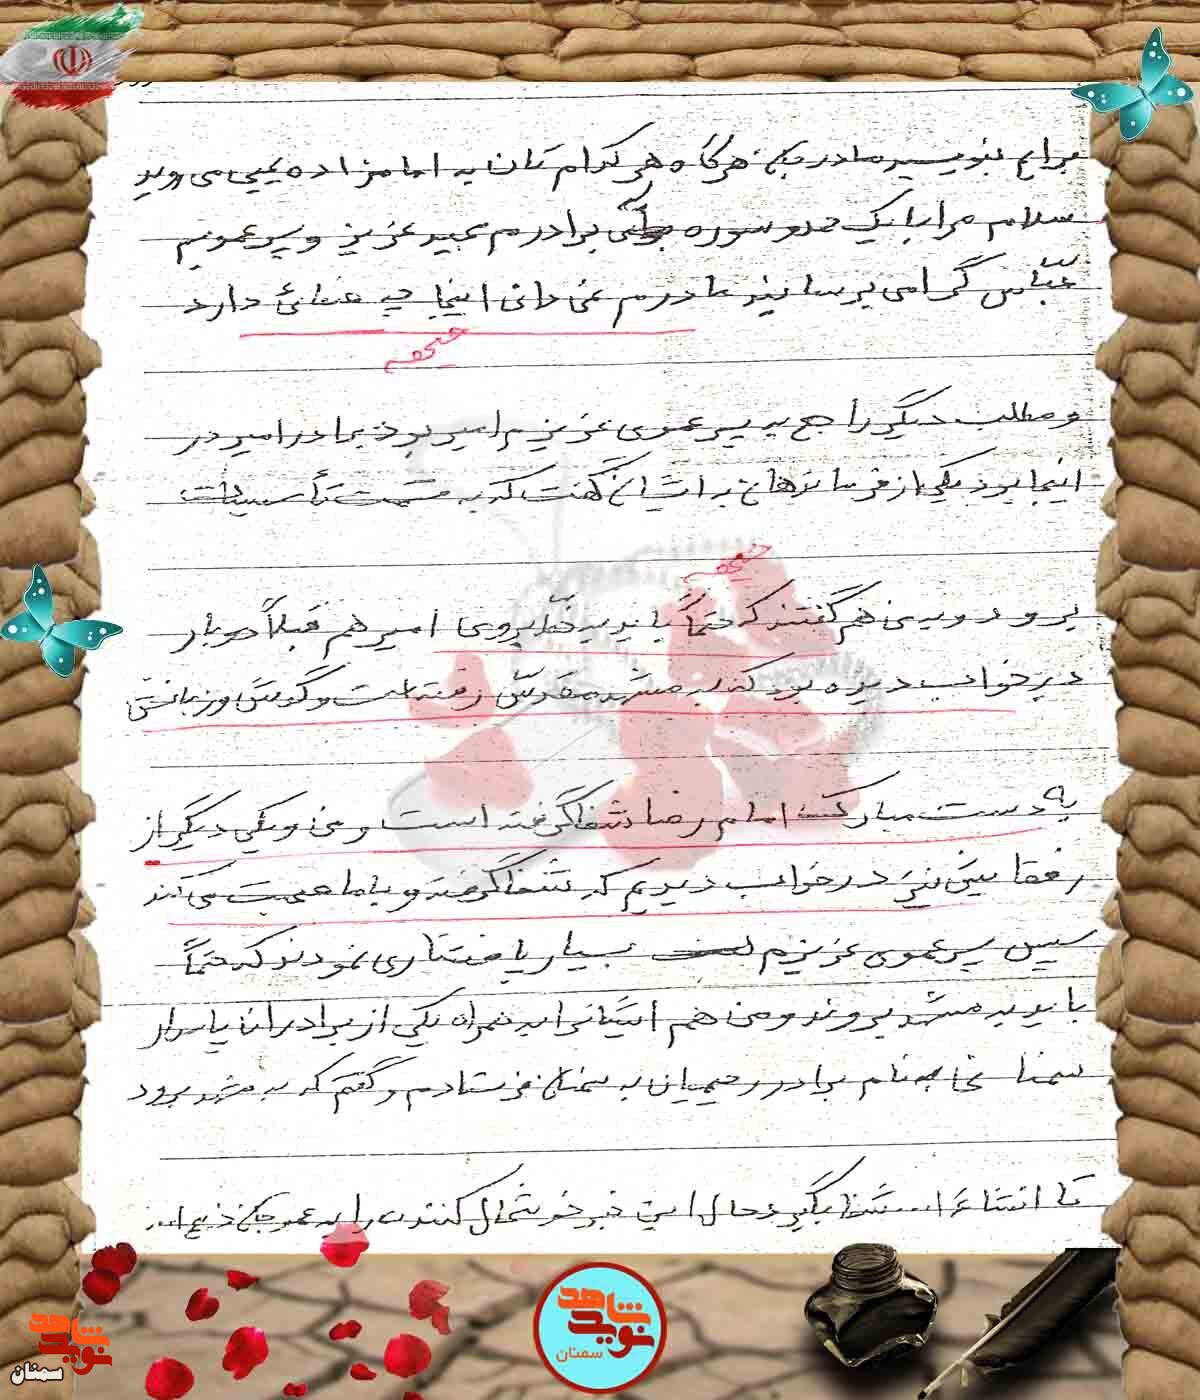 برایم بنویسید مادر جان هرگاه هر کدام تان به امامزاده یحیی می روید
سلام مرا با یک حمد و سوره به برادرم مجید عزیز و پسر عمویم
عباس گرامی برسانید مادرم نمی دانی اینجا چه صفائی دارد
صحیحه
و مطلب دیگر راجع به پسر عموی عزیزم امیر بود بمادر امیر در
اینجا بود یکی از فرماندهان به ایشان گفت که به قسمت تأسیسات
صحیحه
برود و به من هم گفتند که حتماً باید به خط بروی امیر هم قبلاً دوبار
در خواب دیده بود که به مشهد مقدس رفته است و گوش و زبانش
به دست مبارک امام رضا شفا گرفته است و من و یکی دیگر از
رفقایش نیز در خواب دیدیم که شفا گرفته و با ما صحبت می کند
سپس پسر عموی عزیزم بسیار پافشاری نمودند که حتماً
باید به مشهد بروند و من هم ایشان را به همراه یکی از برادران پاسدار
سمنانی به نام برادر رحیمیان به سمنان فرستادم و گفتم که به مشهد برود
تا انشاء الله شفا بگیرد حال این خبر خوشحال کننده را به عمو جان
نوید شاهد
سمنان
نوید شاهد
سمنان